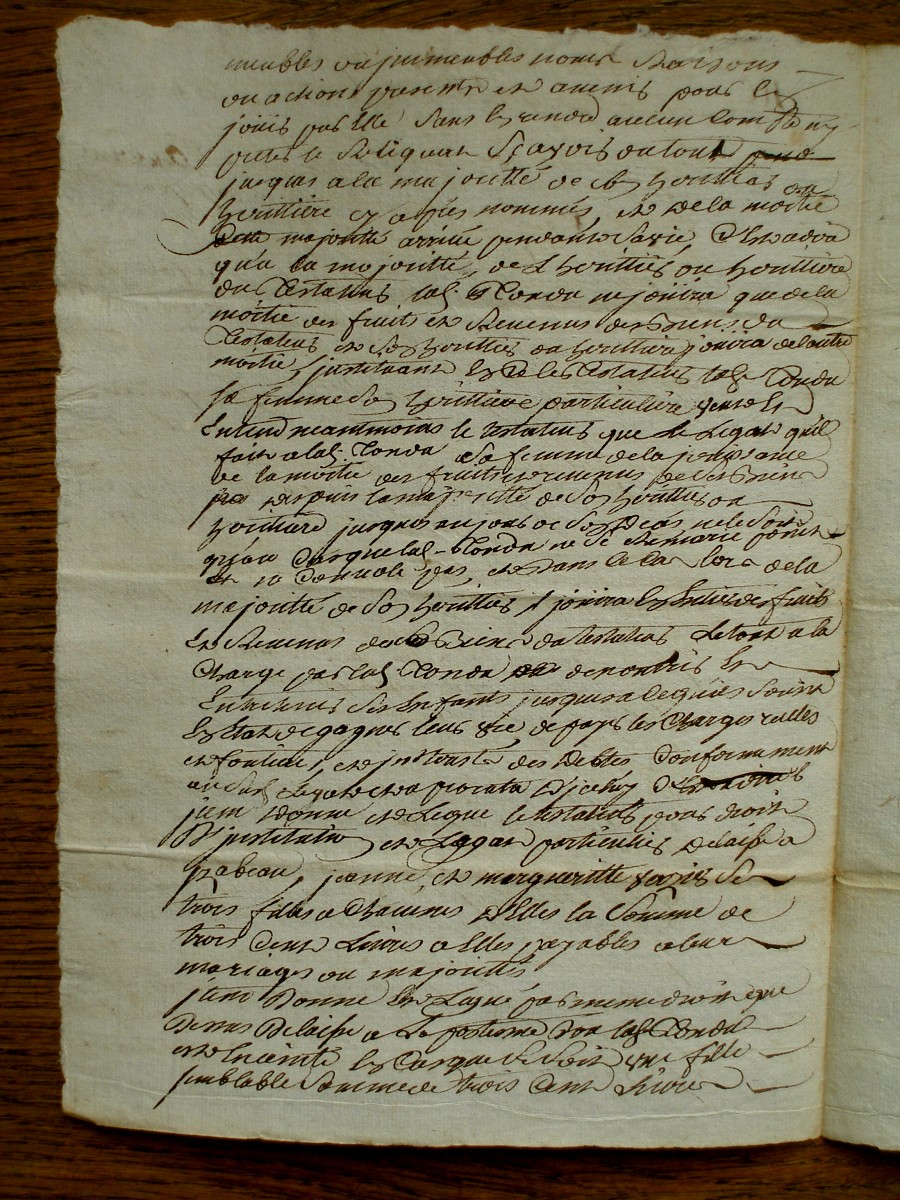 meubles ou jmmeubles noms Raisons
ou actions presents et avenir pour les
jouir par Elle Sans En rendre aucun Compte ny
preter le Reliquat Sçavoir du tout
jusques a la majoritté de Son heritier ou
heritière cy apres nommés, et de la moitié
Cette majoritté arrivée pendant Sa vie, C'est a dire
qu'a la majoritté, de L'heritier ou heritière
du Testateur lad. Conda ne jouira que de la
moitié des fruits et Revenus des Biens du
Testateur et Son heritier ou heritière jouira de l'autre
moitié, jnstituant led. Testateur lad. Conda
Sa femme Son heritière particulière
Entend neantmoins le testateur que Le Legat qu'il
fait a lad. Conda Sa femme de la
de la moitié des fruits et revenus de Ses Biens
depuis la majoritté de Son heritier ou
heritiere jusques au jour de Son Decès ne le Soit
qu'au Cas que lad. Conda ne Se Remarie point
et ne Convole pas, et dans le Cas lors de la
majoritté de Son heritier, jouira En Entier des fruits
Et Revenus des Biens du testateur Le tout a la
Charge par lad. Conda de nourrir Et
Entretenir Ses Enfants jusques a Ce qu'ils Soient
En Etat de gagner leur vie de payer les Charges réelles
et foncieres, et des Debtes Conformement
aud. Legat et a prorata D'jceluy
jtem Donne et Legue le testateur pour droit
D'jnstitution et Legat particulier Delaisse a
jzabeau, jeanne, et margueritte Ses
trois filles a Chacune D'Elles la Somme de
trois Cent Livres a Elles payables a leur
mariages ou majorittés
jtem Donne Et Legue par meme droit que
Dessus Delaisse a La postume don lad. Conda
est Enceinte En Cas que Ce Soit une fille
semblable Somme de trois Cent Livres